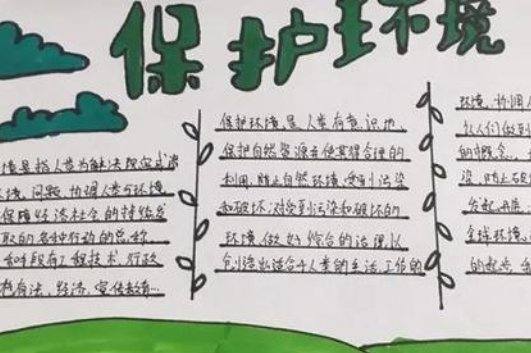 保护环境
境是指人类为解决现实或潜
环境问题，协调人类与环境
保障经济社会的持续发
取的各种行动的总称
和手段有工程技术、行政
也有法、经济、宣传教育...
保护环境是人类有意识地
保护自然资源并使其得合理的
利用，防止自然环境受到污染
和破坏；对受到污染和破坏的
环境做好综合的治理，以
创造出适合于人类的生活、工作的
环境，协调人
人们做到
的概念，
染，防止破
发起，
全球环境
的起来，